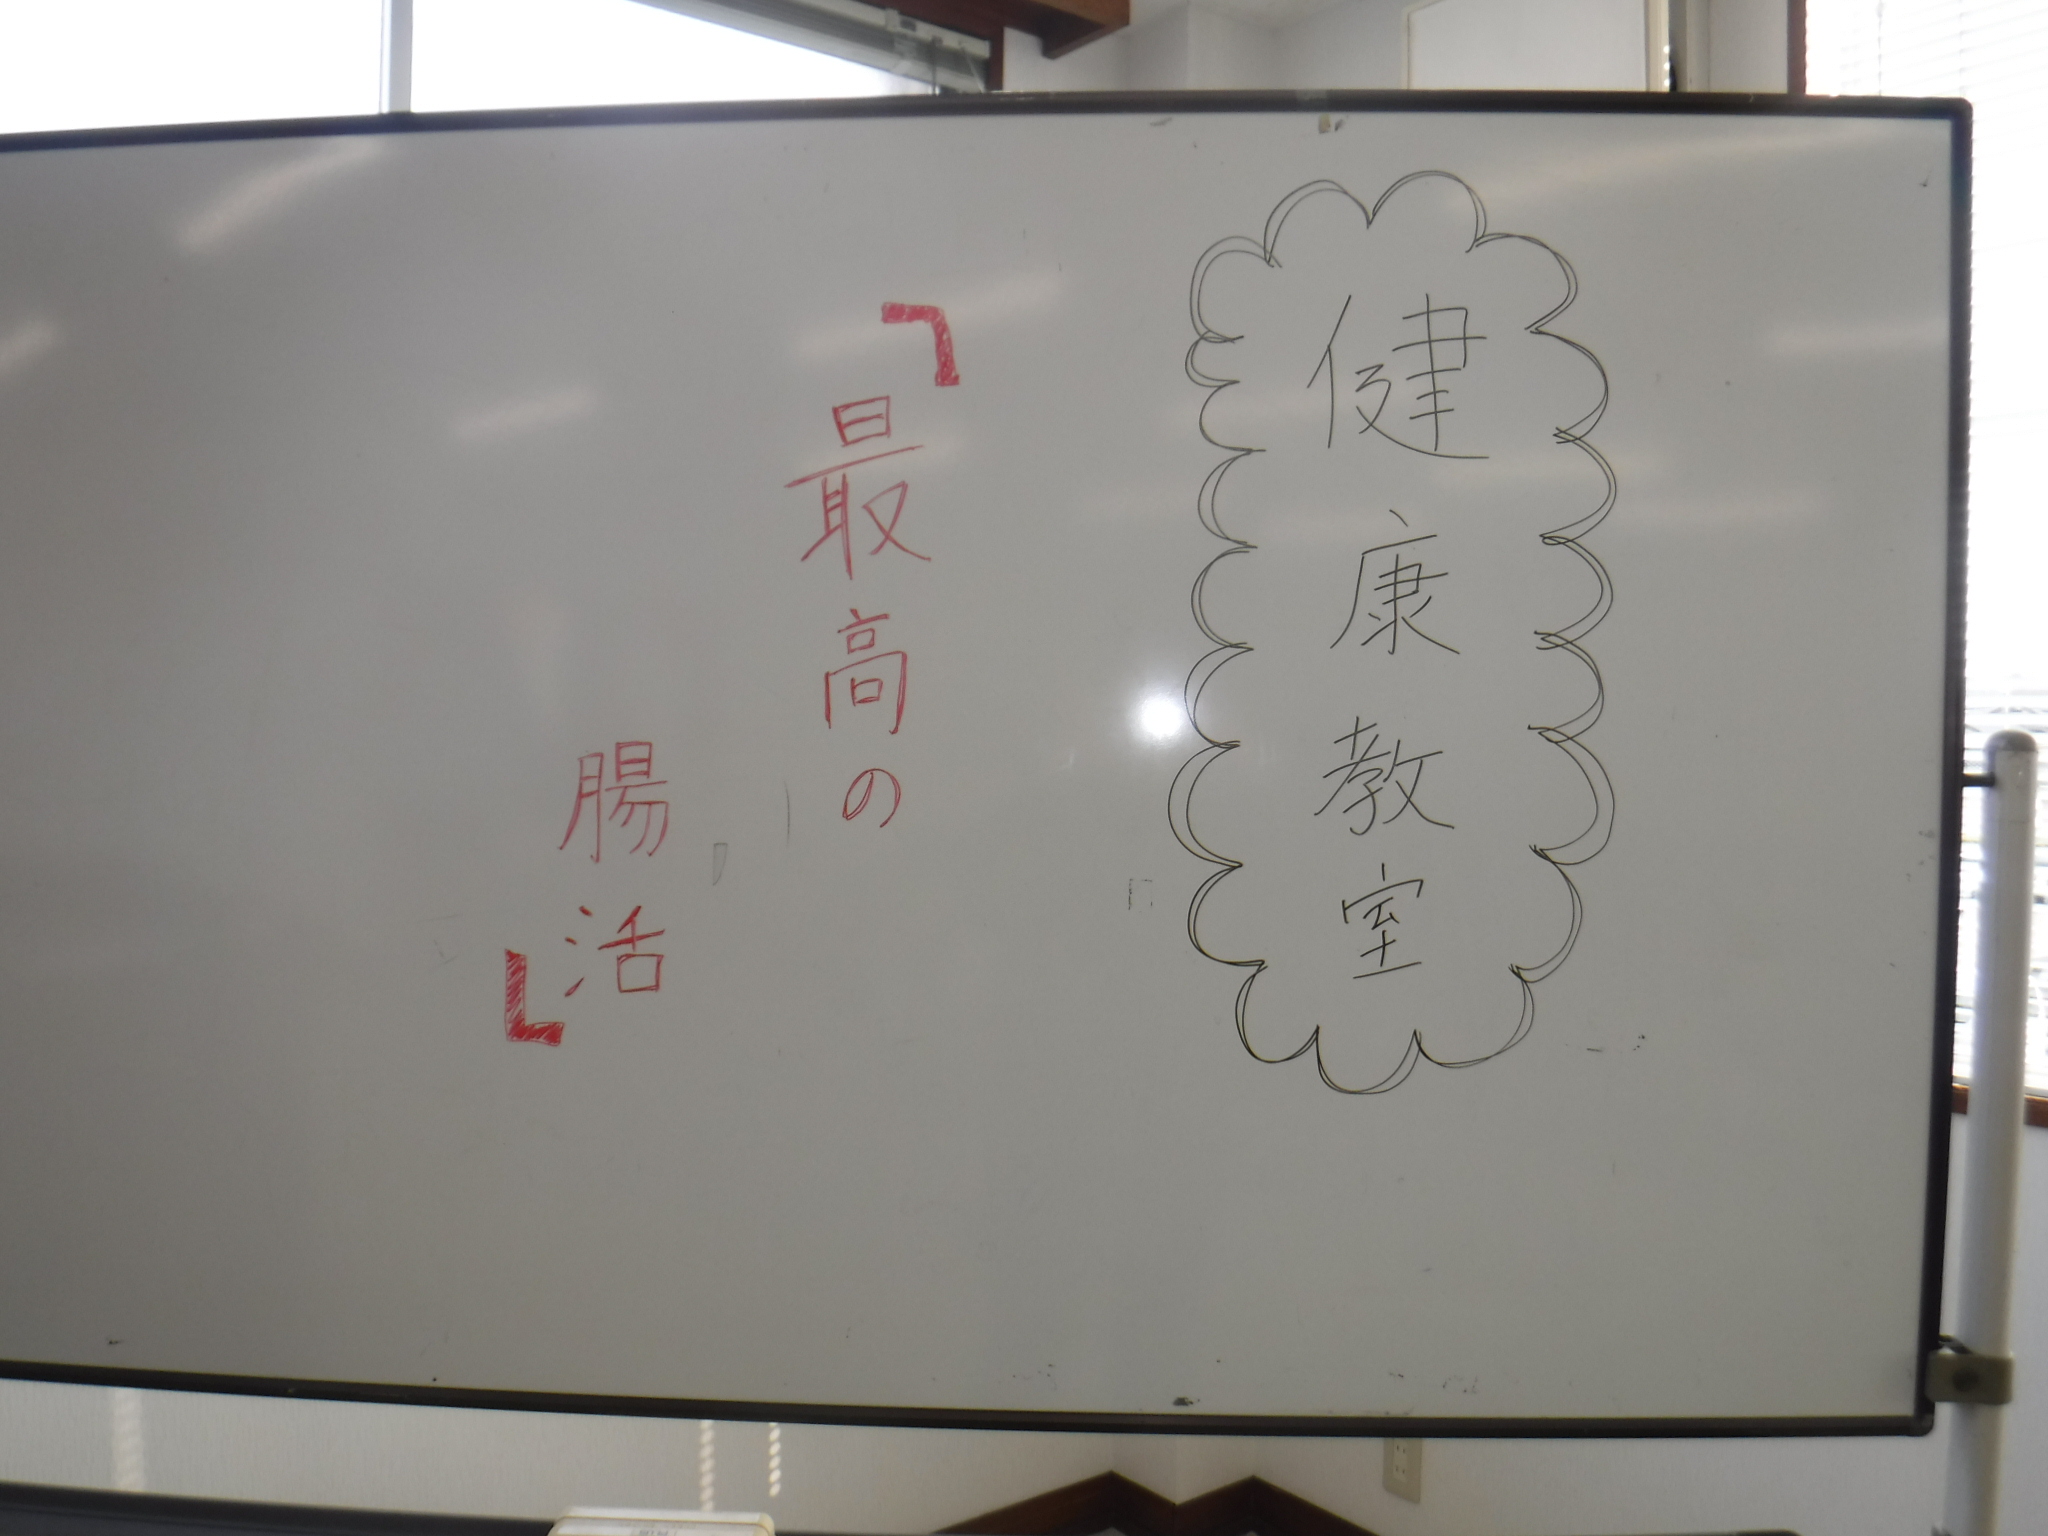 健康教室
「最高の
腸活」